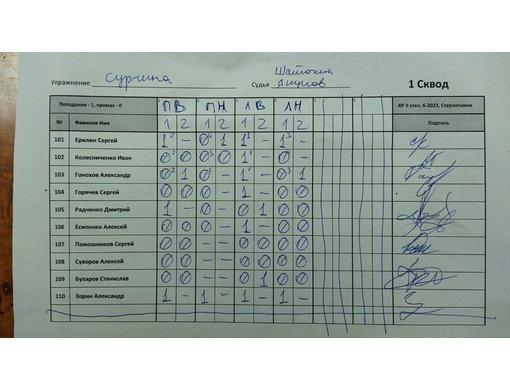 Упражнение Сурчина Судья Шайтокин 1 Сквод
Попадание - 1, промах - 0 ПВ ПН ЛВ ЛН КР II этап, 6-2023, Стерлитамак
№ Фамилия Имя 1 2 1 2 1 2 1 2 Подпись
101 Ерилин Сергей 1² - 0⁴ 1 1¹ - 1³ -
102 Колесниченко Иван 0² 0 0³ 0 1⁴ - 0 -
103 Гонохов Александр 0² 1 0 - 1 - 0³ 1
104 Горячев Сергей 0 0 0 - 1 - 0 0
105 Радченко Дмитрий 1 - 0 - 0 1 0 0
106 Есипенко Алексей 0 0 0 - 1 - 0 0
107 Помошников Сергей 0 0 - - 0 0 0 0
108 Суворов Алексей 0 0 - - 0 0 0 0
109 Бухаров Станислав 0 0 - - 0 1 0 0
110 Зорин Александр 1 - 1 - 1 - 1 -